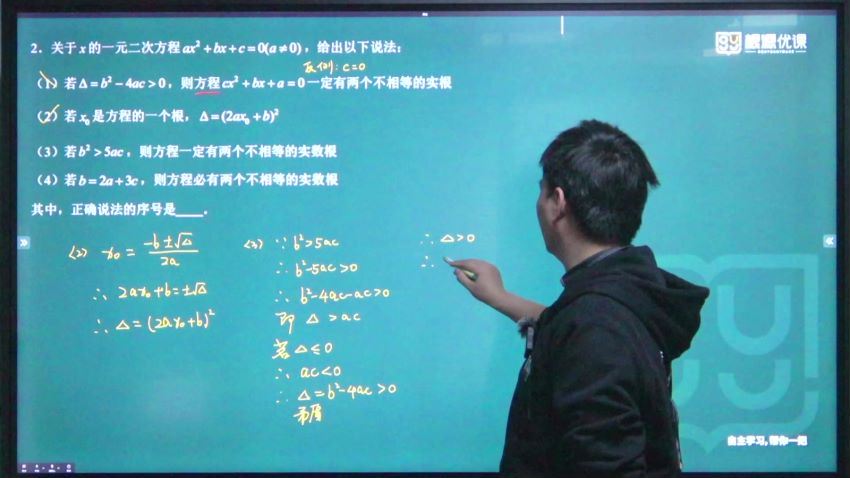 根源优课
2. 关于x的一元二次方程ax²+bx+c=0(a≠0)，给出以下说法：
反例：c=0
（1）若Δ=b²-4ac>0，则方程cx²+bx+a=0一定有两个不相等的实根
（2）若x₀是方程的一个根，Δ=(2ax₀+b)²
（3）若b²>5ac，则方程一定有两个不相等的实数根
（4）若b=2a+3c，则方程必有两个不相等的实数根
其中，正确说法的序号是____。
(2) x₀=(-b±√Δ)/2a
∴ 2ax₀+b=±√Δ
∴ Δ=(2ax₀+b)²
(3) ∵ b²>5ac
∴ b²-5ac>0
∴ b²-4ac-ac>0
即 Δ>ac
若Δ≤0
∴ ac<0
∴ Δ=b²-4ac>0
矛盾
∴ Δ>0
∴
自主学习，帮你一把